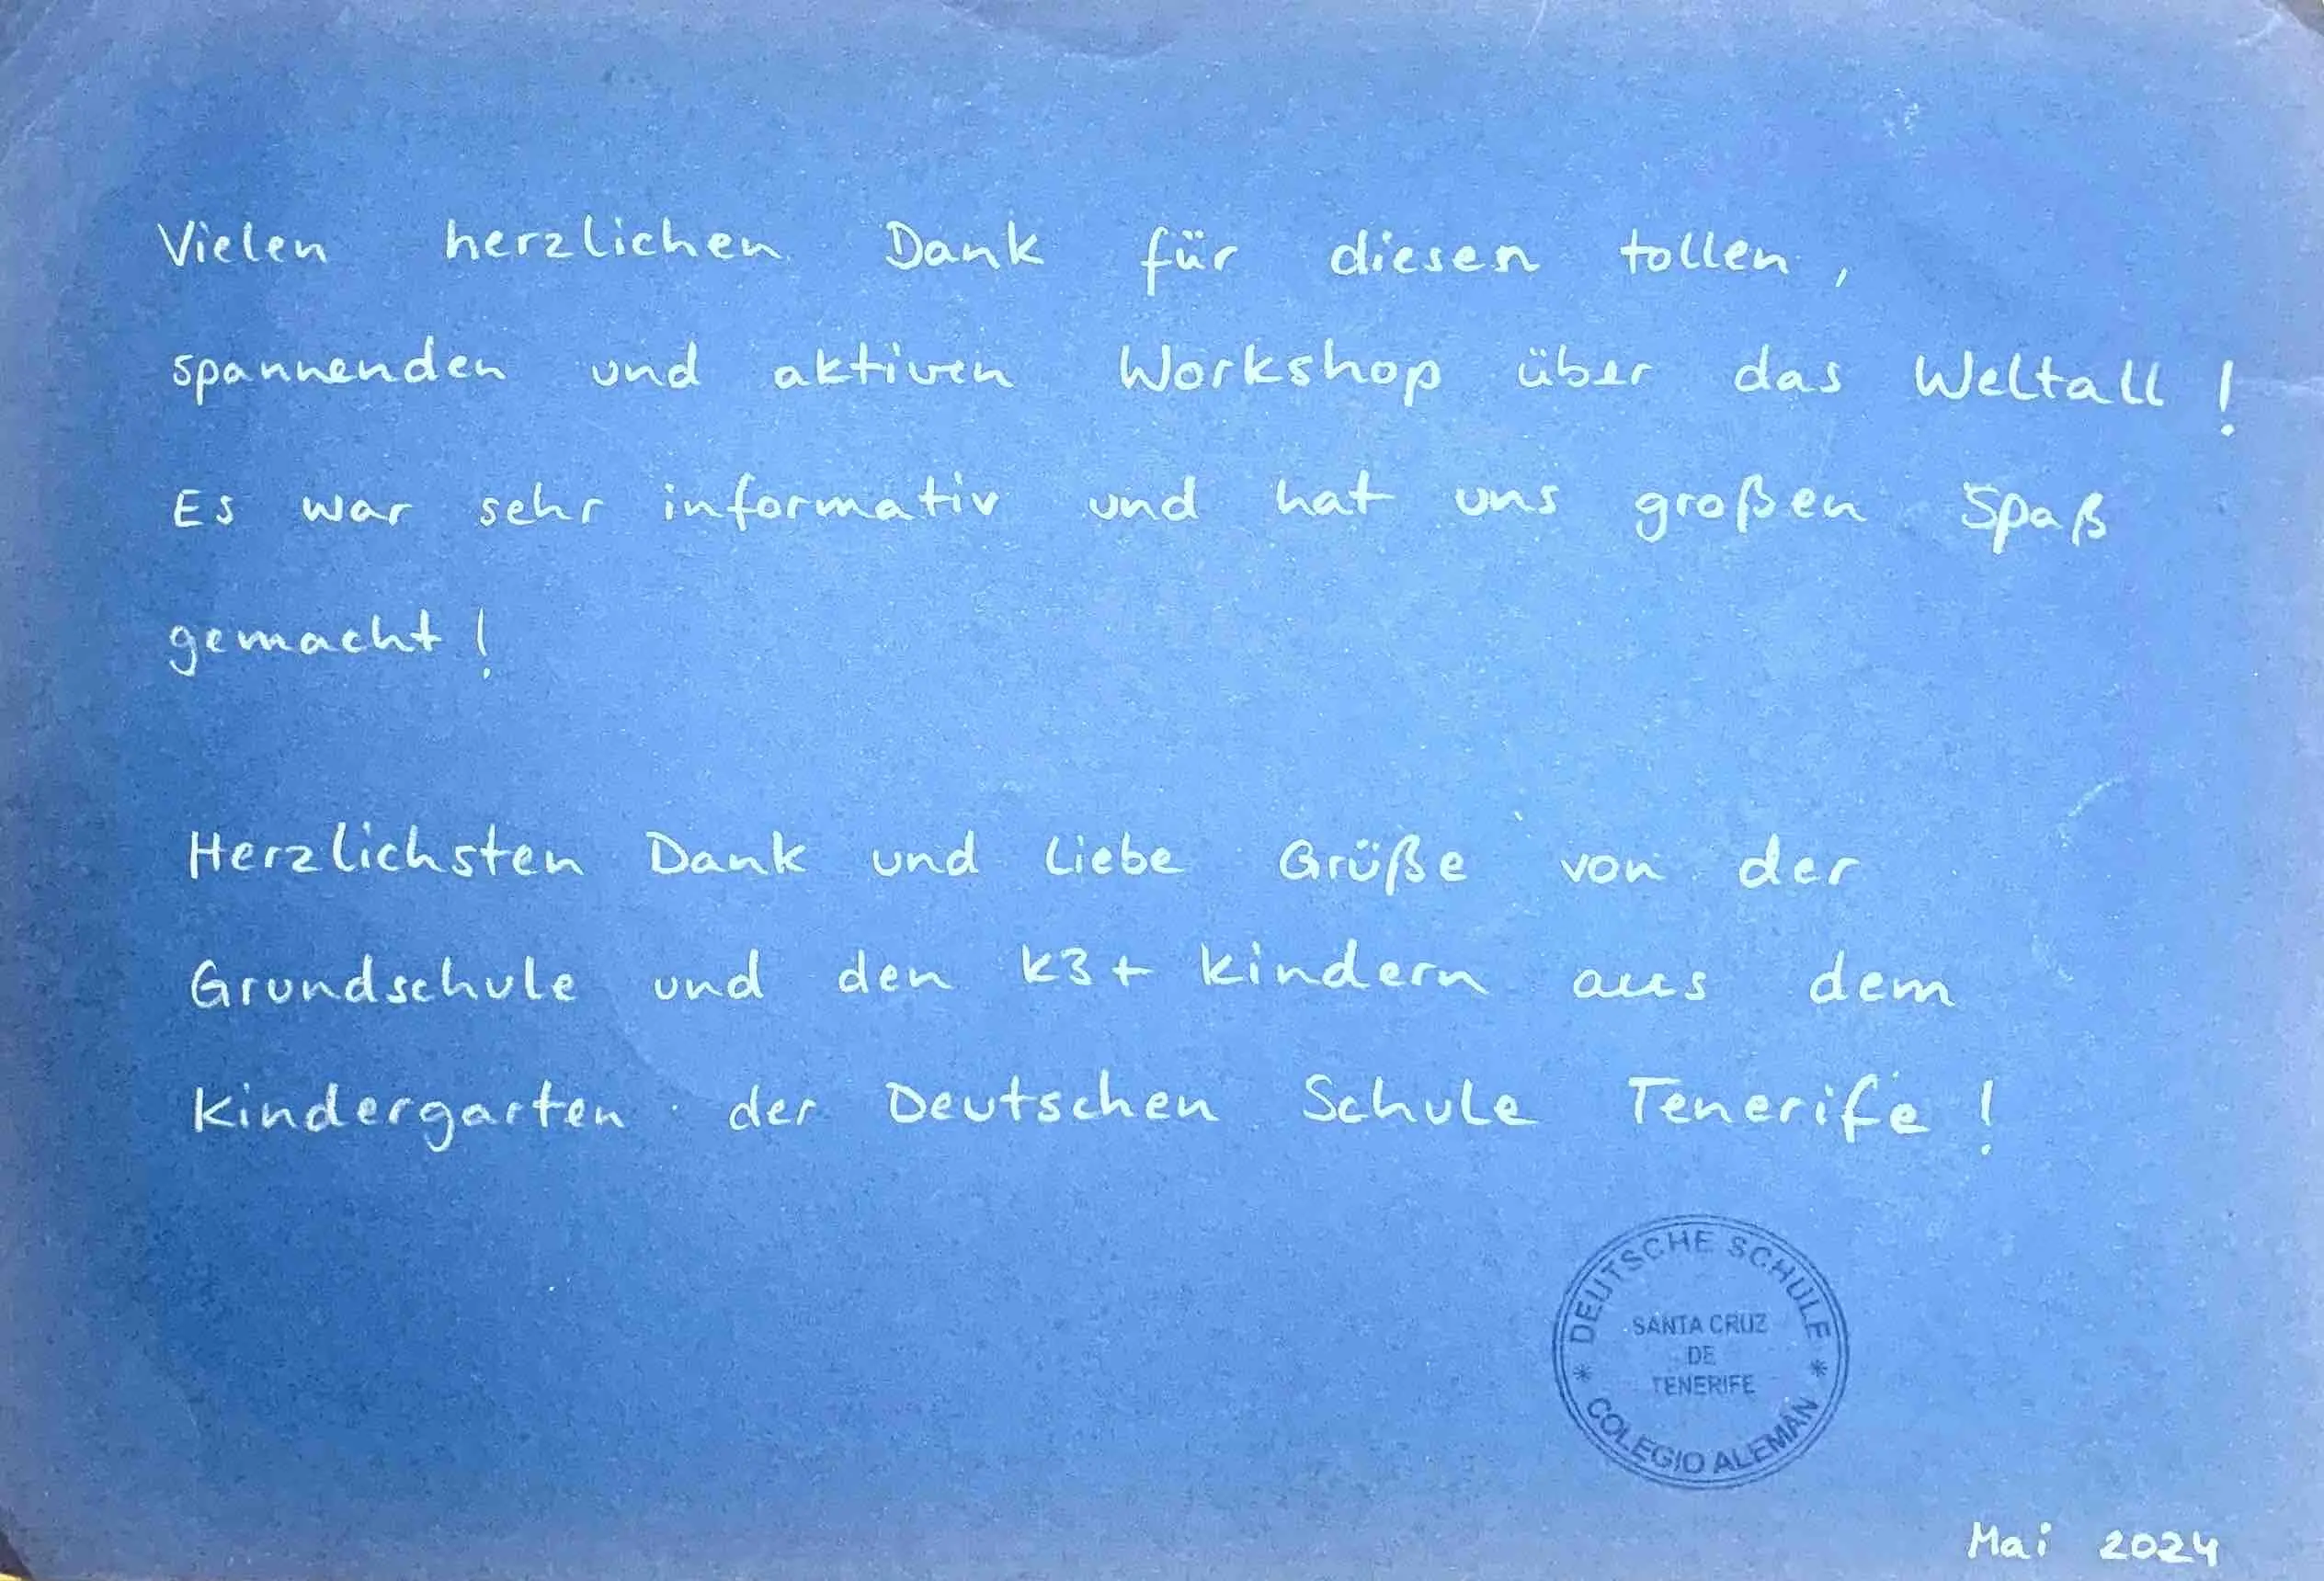 Vielen herzlichen Dank für diesen tollen,
spannenden und aktiven Workshop über das Weltall!
Es war sehr informativ und hat uns großen Spaß
gemacht!
Herzlichsten Dank und liebe Grüße von der
Grundschule und den K3+ Kindern aus dem
Kindergarten der Deutschen Schule Tenerife!
DEUTSCHE SCHULE
SANTA CRUZ
DE
TENERIFE
COLEGIO ALEMÁN
Mai 2024